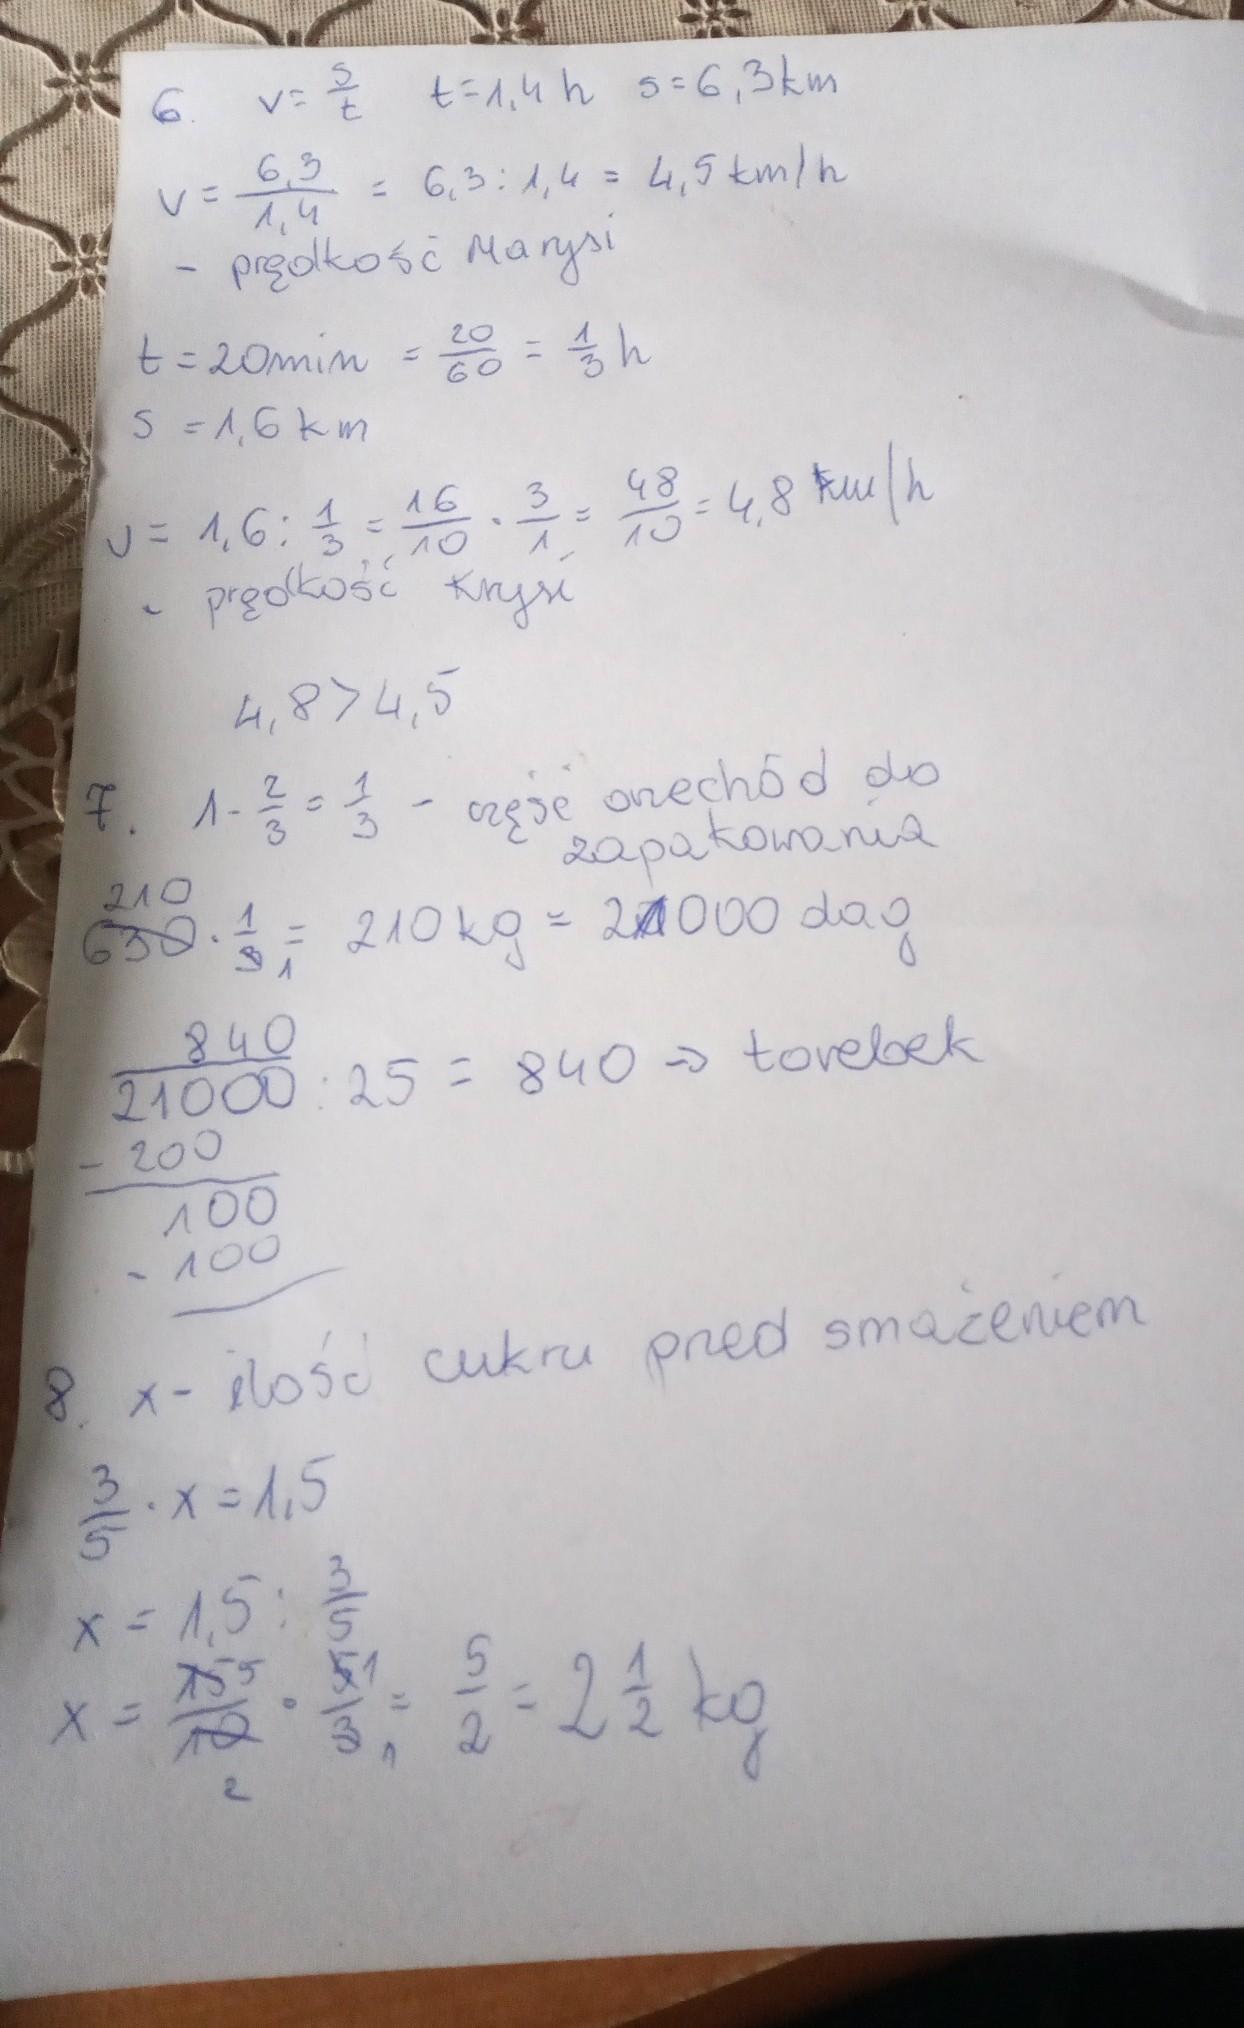 6. v = s/t t = 1,4 h s = 6,3 km
v = 6,3/1,4 = 6,3 : 1,4 = 4,5 km/h
- prędkość Marysi
t = 20 min = 20/60 = 1/3 h
s = 1,6 km
v = 1,6 : 1/3 = 16/10 · 3/1 = 48/10 = 4,8 km/h
- prędkość Krysi
4,8 > 4,5
7. 1 - 2/3 = 1/3 - część orzechód do
zapakowania
210
630 · 1/3 1 = 210 kg = 21000 dag
840
21000 : 25 = 840 → torebek
- 200
100
- 100
8. x - ilość cukru przed smażeniem
3/5 · x = 1,5
x = 1,5 : 3/5
x = 15 5/10 · 5 1/3 1 = 5/2 = 2 1/2 kg
2